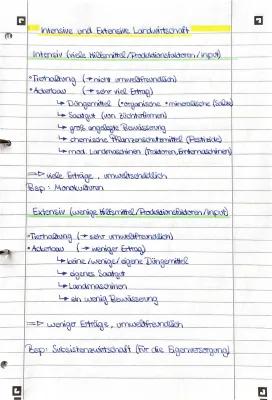 Intensive und Extensive Landwirtschaft
Intensiv (viele Hilfsmittel/Produktionsfaktoren/Input)
•Tierhaltung (→ nicht umweltfreundlich)
•Ackerbau (→ sehr viel Ertrag)
↳ Düngemittel (•organische •mineralische (Salze)
↳ Saatgut (von Züchterfirmen)
↳ groß angelegte Bewässerung
↳ chemische Pflanzenschutzmittel (Pestizide)
↳ mod. Landmaschinen (Traktoren, Erntemaschinen)
⇒ viele Erträge, umweltschädlich
Bsp: Monokulturen
Extensiv (wenige Hilfsmittel/Produktionsfaktoren/Input)
•Tierhaltung (→ sehr umweltfreundlich)
•Ackerbau (→ weniger Ertrag)
↳ keine/wenige/eigene Düngemittel
↳ eigenes Saatgut
↳ Landmaschinen
↳ ein wenig Bewässerung
⇒ weniger Erträge, umweltfreundlich
Bsp: Subsistenzwirtschaft (für die Eigenversorgung)